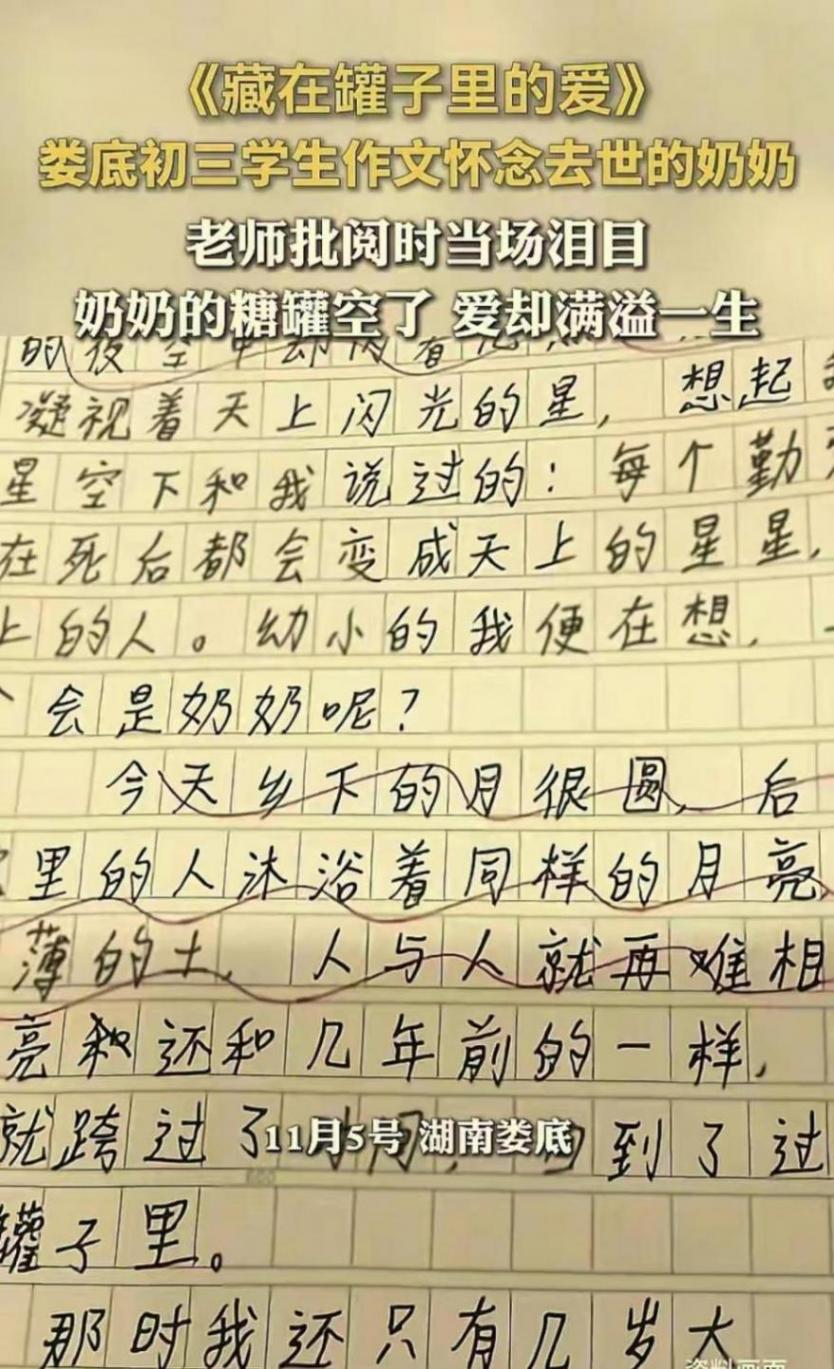 《藏在罐子里的爱》
娄底初三学生作文怀念去世的奶奶
老师批阅时当场泪目
奶奶的糖罐空了 爱却满溢一生
的夜空中却闪着
凝视着天上闪光的星，想起
星空下和我说过的：每个勤
在死后都会变成天上的星星，
上的人。幼小的我便在想，一
会是奶奶呢？
今天乡下的月很圆，后
里的人沐浴着同样的月亮
薄的土，人与人就再难相
亮和还和几年前的一样，
就跨过了 到了过
11月5号 湖南娄底
罐子里。
那时我还只有几岁大
资料画面